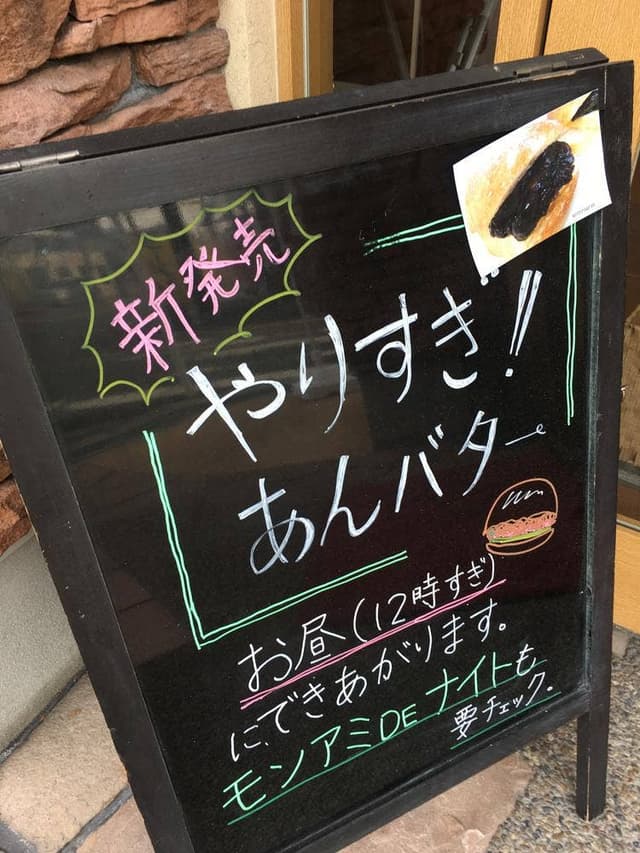 新発売
やりすぎ!!
あんバター
お昼(12時すぎ)
にできあがります。
モンアミDE ナイトも
要チェック。